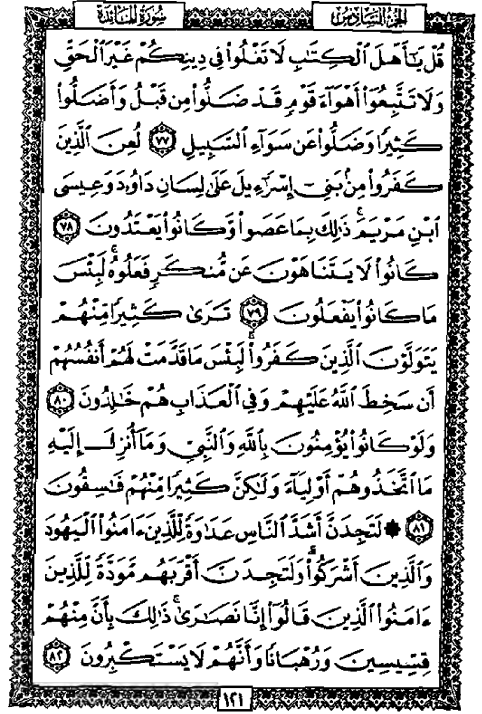 سورة المائدة
الجزء السادس
قُلْ يَٰٓأَهْلَ ٱلْكِتَٰبِ لَا تَغْلُوا۟ فِى دِينِكُمْ غَيْرَ ٱلْحَقِّ
وَلَا تَتَّبِعُوٓا۟ أَهْوَآءَ قَوْمٍ قَدْ ضَلُّوا۟ مِن قَبْلُ وَأَضَلُّوا۟
كَثِيرًا وَضَلُّوا۟ عَن سَوَآءِ ٱلسَّبِيلِ ٧٧ لُعِنَ ٱلَّذِينَ
كَفَرُوا۟ مِنۢ بَنِىٓ إِسْرَٰٓءِيلَ عَلَىٰ لِسَانِ دَاوُۥدَ وَعِيسَى
ٱبْنِ مَرْيَمَ ۚ ذَٰلِكَ بِمَا عَصَوا۟ وَّكَانُوا۟ يَعْتَدُونَ ٧٨
كَانُوا۟ لَا يَتَنَاهَوْنَ عَن مُّنكَرٍ فَعَلُوهُ ۚ لَبِئْسَ
مَا كَانُوا۟ يَفْعَلُونَ ٧٩ تَرَىٰ كَثِيرًا مِّنْهُمْ
يَتَوَلَّوْنَ ٱلَّذِينَ كَفَرُوا۟ ۚ لَبِئْسَ مَا قَدَّمَتْ لَهُمْ أَنفُسُهُمْ
أَن سَخِطَ ٱللَّهُ عَلَيْهِمْ وَفِى ٱلْعَذَابِ هُمْ خَٰلِدُونَ ٨٠
وَلَوْ كَانُوا۟ يُؤْمِنُونَ بِٱللَّهِ وَٱلنَّبِىِّ وَمَآ أُنزِلَ إِلَيْهِ
مَا ٱتَّخَذُوهُمْ أَوْلِيَآءَ وَلَٰكِنَّ كَثِيرًا مِّنْهُمْ فَٰسِقُونَ
٨١ ۞ لَتَجِدَنَّ أَشَدَّ ٱلنَّاسِ عَدَٰوَةً لِّلَّذِينَ ءَامَنُوا۟ ٱلْيَهُودَ
وَٱلَّذِينَ أَشْرَكُوا۟ ۖ وَلَتَجِدَنَّ أَقْرَبَهُم مَّوَدَّةً لِّلَّذِينَ
ءَامَنُوا۟ ٱلَّذِينَ قَالُوٓا۟ إِنَّا نَصَٰرَىٰ ۚ ذَٰلِكَ بِأَنَّ مِنْهُمْ
قِسِّيسِينَ وَرُهْبَانًا وَأَنَّهُمْ لَا يَسْتَكْبِرُونَ ٨٢
١٢١